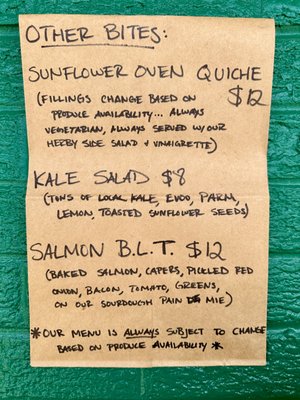 OTHER BITES:
SUNFLOWER OVEN QUICHE
$12
(FILLINGS CHANGE BASED ON
PRODUCE AVAILABILITY... ALWAYS
VEGETARIAN, ALWAYS SERVED W/OUR
HERBY SIDE SALAD + VINAIGRETTE)
KALE SALAD $8
(TONS OF LOCAL KALE, EVOO, PARM,
LEMON, TOASTED SUNFLOWER SEEDS)
SALMON B.L.T. $12
(BAKED SALMON, CAPERS, PICKLED RED
ONION, BACON, TOMATO, GREENS,
ON OUR SOURDOUGH PAIN DE MIE)
*OUR MENU IS ALWAYS SUBJECT TO CHANGE
BASED ON PRODUCE AVAILABILITY *